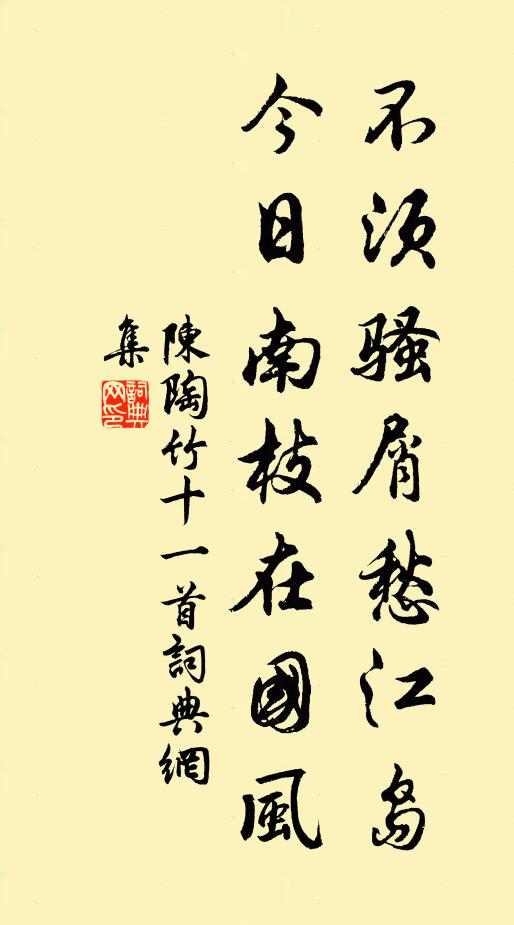 不須騷屑愁江島
今日南枝在國風
陳陶竹十一首詞典網
集
詞典網印